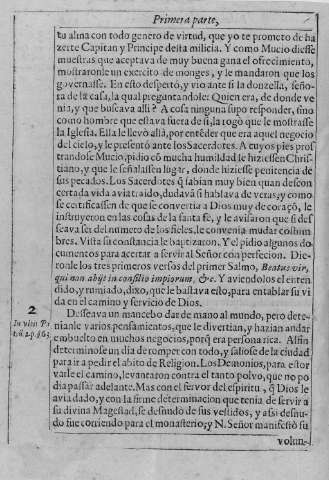 Primera parte,
tu alma con todo genero de virtud, que yo te prometo de ha
zerte Capitan y Principe desta milicia. Y como Mucio diesse
muestras que aceptava de muy buena gana el ofrecimiento,
mostraronle un exercito de monges, y le mandaron que los
governasse. En esto despertó, y vio ante si la donzella, seño-
ra de la casa, la qual preguntandole: Quien era, de donde ve
nia, y que buscava alli? A cosa ninguna supo responder, sino
como hombre que estava fuera de si, la rogò que le mostrasse
la Iglesia. Ella le llevò allá, por entẽder que era aquel negocio
del cielo, y le presentò ante los Sacerdotes. A cuyos pies pros
trandose Mucio, pidio cõ mucha humildad le hiziessen Chris-
tiano, y que le señalassen lugar, donde hiziesse penitencia de
sus pecados. Los Sacerdotes q̃ sabian muy bien quan descon
certada vida avia traido, dudavã si hablava de veras, y como
se certificassen de que se convertia a Dios muy de coraçõ, le
instruyeron en las cosas de la santa fè, y le avisaron que si des
seava ser del numero de los fieles, le convenia mudar costum
bres. Vista su constancia le baptizaron. Y el pidio algunos do
cumentos para acertar a servir al Señor con perfecion. Die-
ronle los tres primeros versos del primer Salmo, Beatus vir,
qui non abijt in consilio impiorum, &c. Y aviendolos el enten
dido, y rumiado, dixo, que le bastava esto, para entablar su vi
da en el camino y servicio de Dios.
2
Desseava un mancebo dar de mano al mundo, pero dete-
nianle varios pensamientos, que le divertian, y hazian andar
embuelto en muchos negocios, porq̃ era persona rica. Al fin
determinose un dia de romper con todo, y saliose de la ciudad
para ir a pedir el abito de Religion. Los Demonios, para estor
varle el camino, levantaron contra el tanto polvo, que no po
dia passar adelante. Mas con el fervor del espiritu, q̃ Dios le
avia dado, y con la firme determinacion que tenia de servir a
su divina Magestad, se desnudò de sus vestidos, y assi desnu-
do fue corriendo para el monasterio; y N. Señor manifestò su
volun-
In vitis